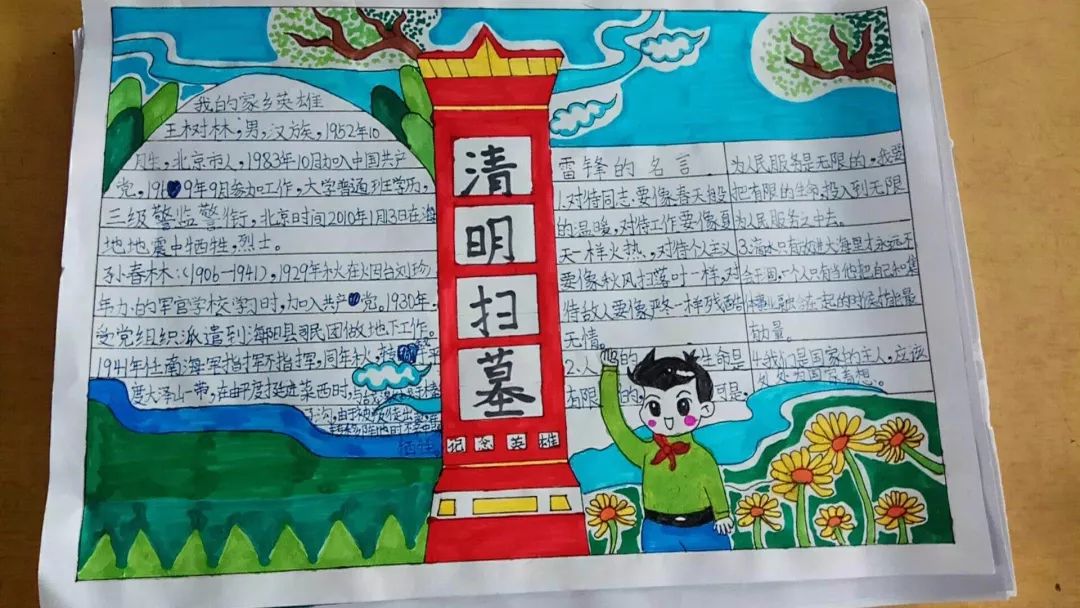 我的家乡英雄
王树林,男,汉族,1952年10
月生,北京市人,1983年10月加入中国共产
党,19 9年9月参加工作,大学普通班学历,
三级警监警衔,北京时间2010年1月13日在海
地地震中牺牲,烈士。
孙春林:(1906—1941),1929年秋在烟台刘珍
年办的军官学校学习时,加入共产党。1930年
受党组织派遣到海阳县民团做地下工作。
1941年任南海军指挥不指挥,同年秋,
大泽山一带,在由平度挺进莱西时,与
牺牲
清
明
扫
墓
纪念英雄
雷锋的名言
1.对待同志要像春天般
的温暖,对待工作要像夏
天一样火热,对待个人主义
要像秋风扫落叶一样,对
待敌人要像严冬一样残酷
无情。
2.人 的 生命是
有限的, 可是,
为人民服务是无限的,我要
把有限的生命,投入到无限
为人民服务之中去。
3.滴水只有放进大海里才永远不
会干涸,一个人只有当他把自己和集
体事业融合在一起的时候才能最
有力量。
4.我们是国家的主人,应该
处处为国家着想。